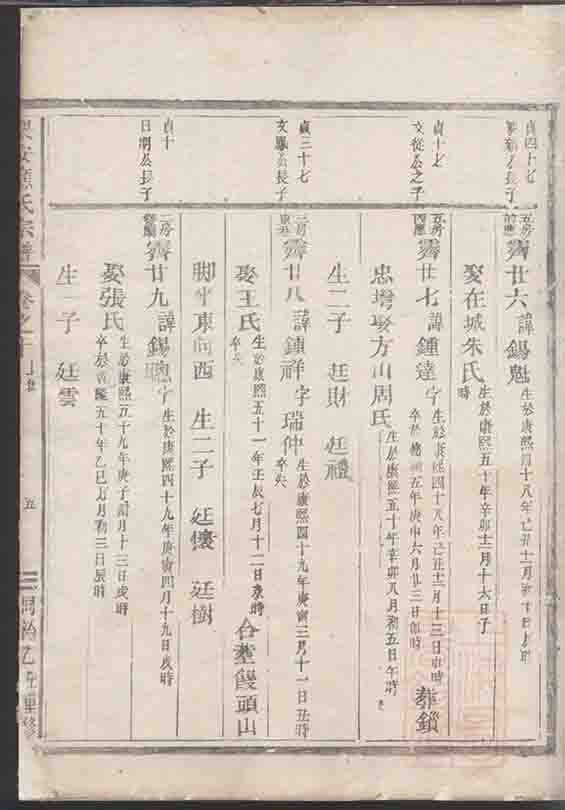 貞四十七
公長子
五房
霽廿六 諱錫魁 生於康熙四十八年己丑十二月初十日
娶在城朱氏 生於康熙五十年辛卯十二月十六日子時
貞十七
文從公之子
五房
霽廿七 諱鍾達 字 生於康熙四十八年己丑十二月十三日申時 卒於 五年庚申六月廿三日 時 葬鎖
忠灣娶方山周氏 生於康熙五十年辛卯八月初五日午時
生二子 廷財 廷禮
貞三十七
文 公長子
三房
霽廿八 諱鍾祥 字瑞仲 生於康熙四十九年庚寅三月十一日丑時 卒失
娶王氏 生於康熙五十一年壬辰七月十二日 時 卒失 合塟饅頭山
脚 東向西 生二子 廷懷 廷樹
貞十
日 公長子
二房
霽廿九 諱錫 字 生於康熙四十九年庚寅四月十九日戌時
娶張氏 生於康熙五十九年庚子 月十三日戌時 卒於乾隆五十年乙巳 月初三日辰時
生一子 廷雲
氏宗譜
卷之十
五
同治乙丑重修